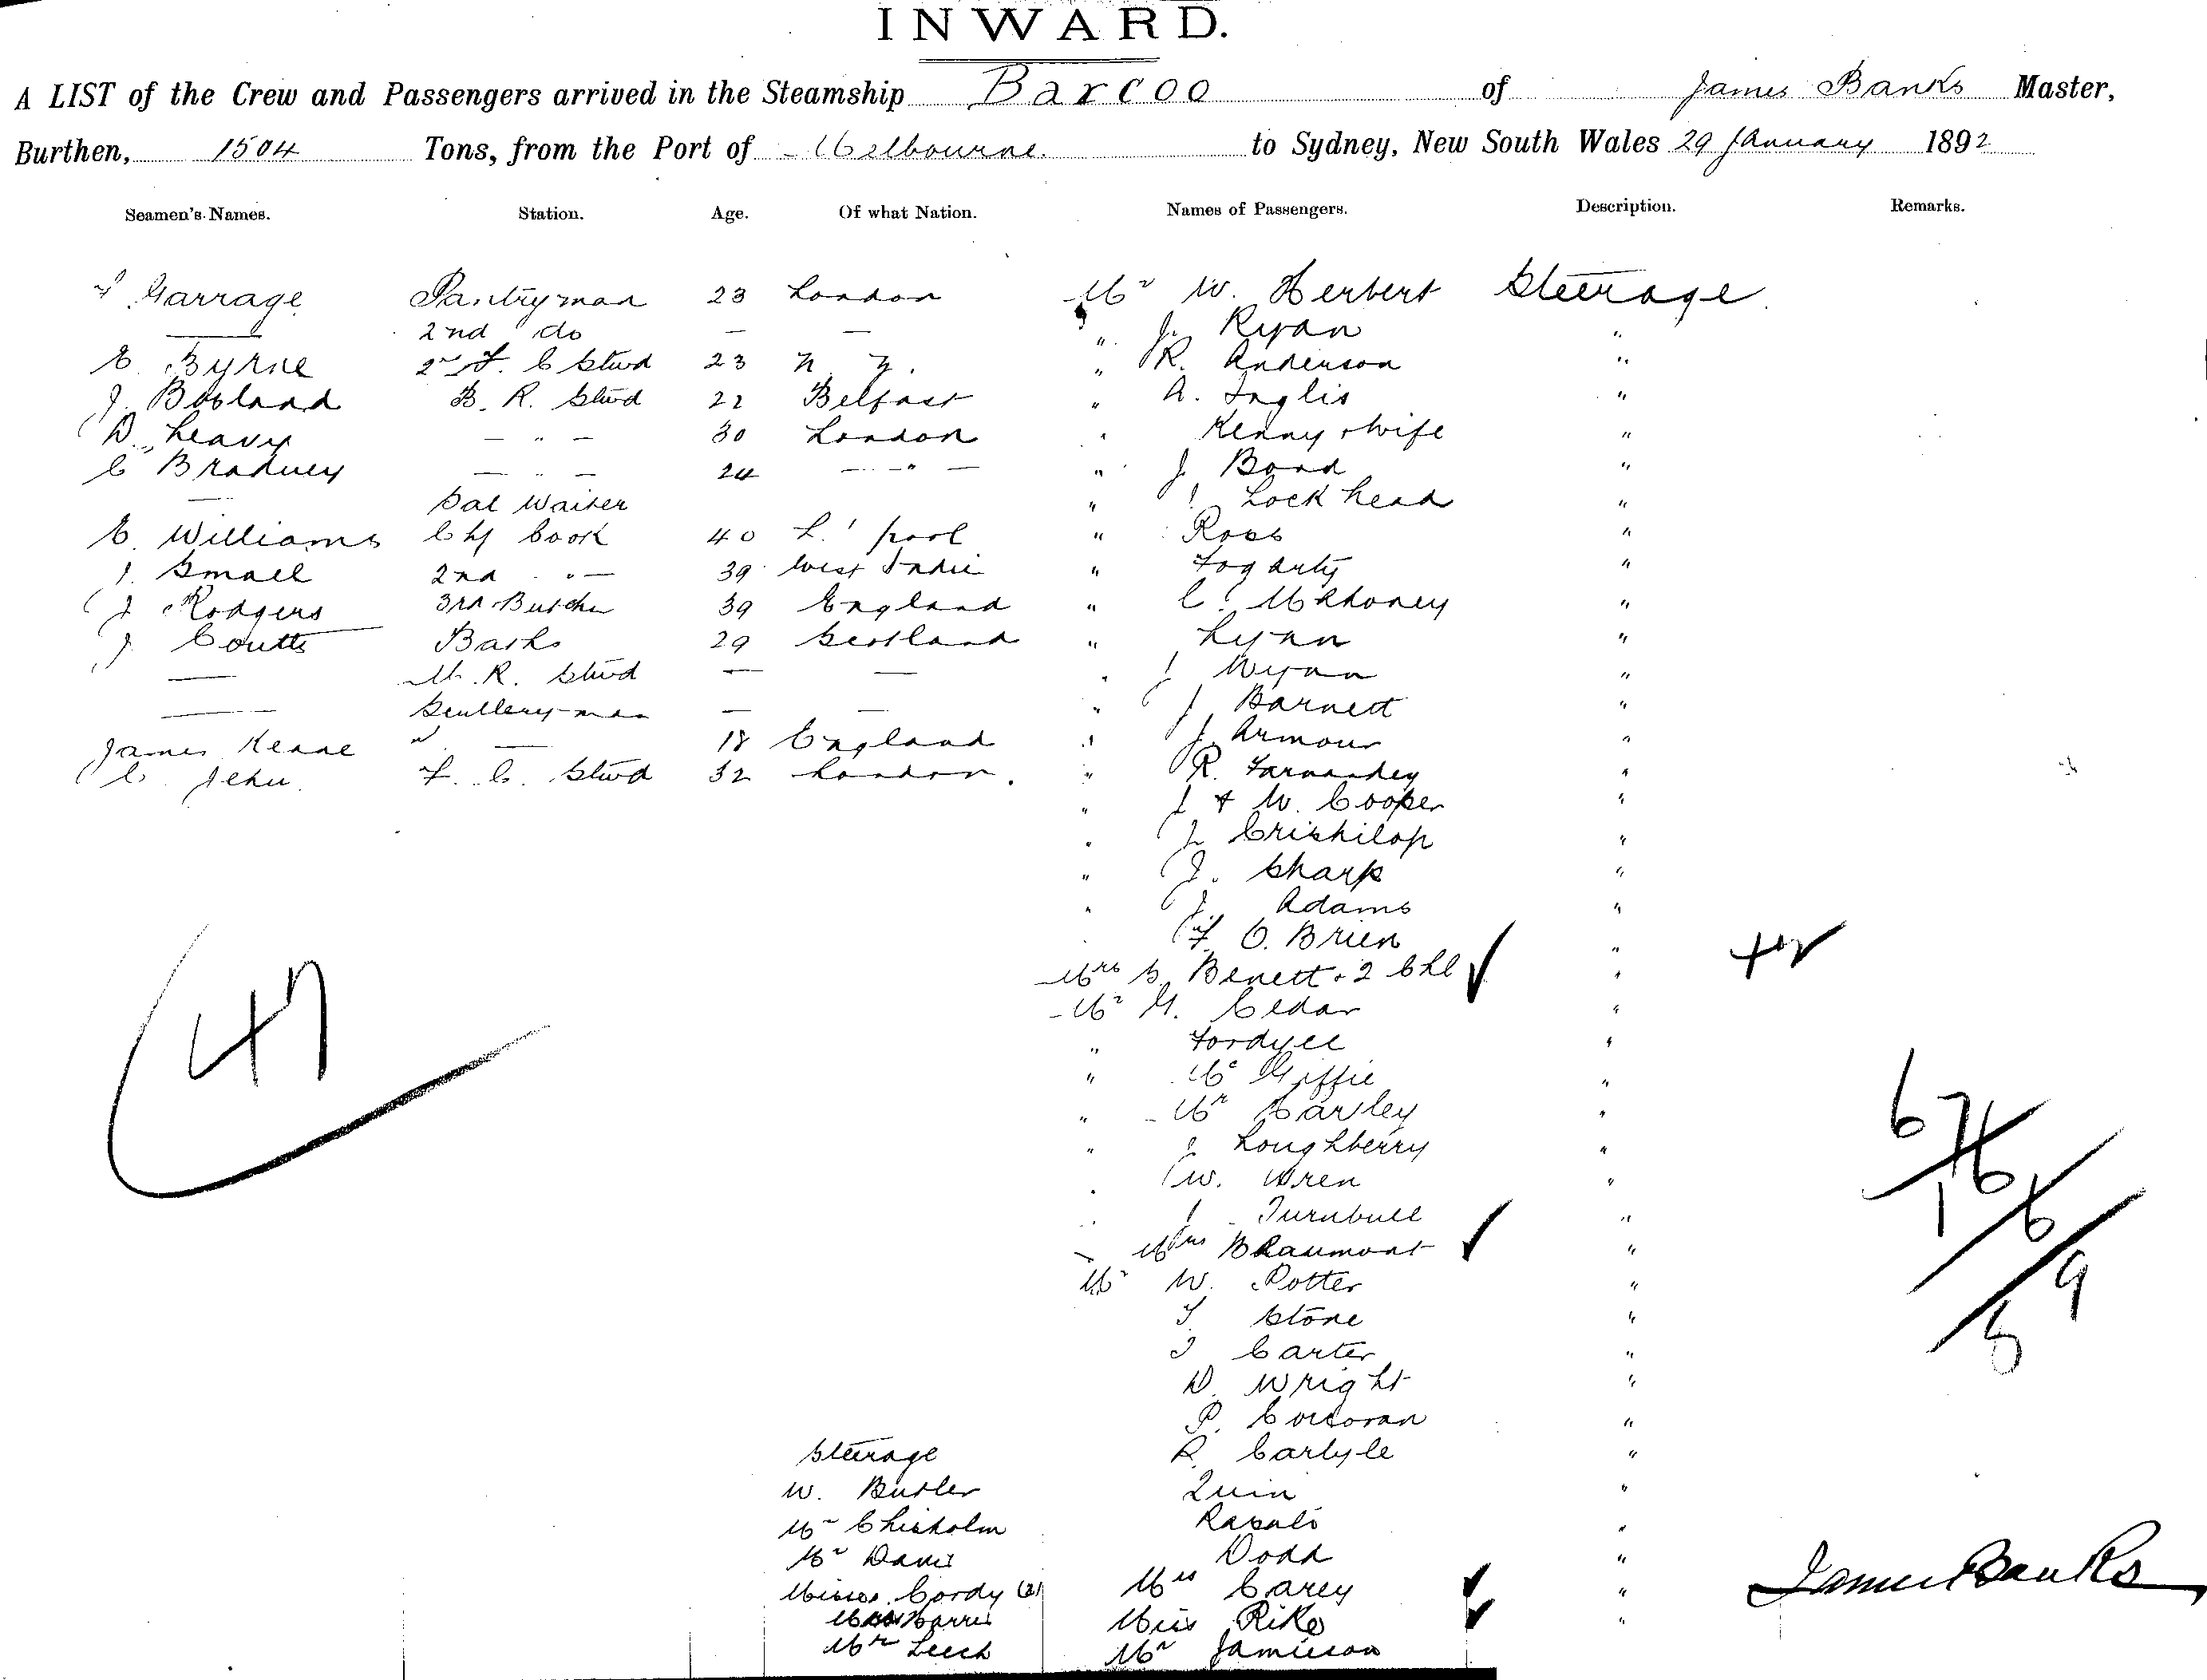 INWARD.
A LIST of the Crew and Passengers arrived in the Steamship Barcoo of James Banks Master,
Burthen, 1504 Tons, from the Port of Melbourne to Sydney, New South Wales 29 January 1892
Seamen's Names. Station. Age. Of what Nation. Names of Passengers. Description. Remarks.
Garrage Pantryman 23 London
— 2nd do — —
E. Byrne 2nd F. C Stwd 23 N. Z.
J. Bosland B. R. Stwd 22 Belfast
D. Leavy — " — 30 London
C Braduey — " — 24 — " —
— Sal Waiter
E. Williams Chf Cook 40 L'pool
J. Small 2nd " — 39 West Indie
J Rodgers 3rd Butcher 39 England
J Coutts Baths 29 Scotland
— M. R. Stwd — —
— Scullery-man — —
James Keane " — 18 England
C. Jehu F. C. Stwd 32 London.
Mr W. Herbert Steerage
" J. Ryan "
" R. Anderson "
" A. Inglis "
" Kenny & wife "
" J Bond "
" J Lockhead "
" Ross "
" Fogarty "
" C. Mahoney "
" Lynn "
" J Wynn "
" J Barnett "
" J. Armour "
" R. Farnandey "
" J & W. Cooper "
" J Crishilop "
" J. Sharp "
" J. Adams "
" F. O. Brien "
Mrs S. Benett & 2 Chl "
Mr G. Cedar "
" Fordyce "
" Mc Giffie "
" Mr Carsley "
" J Loughberry "
" W. Wren "
" J Turnbull "
" Mrs Beaumont "
Mr W. Potter "
T. Stone "
J Carter "
D. Wright "
P. Corcoran "
R. Carlyle "
Quin "
Rasulo "
Dodd "
Mrs Carey "
Miss Rike "
Mr Jamieson
Steerage
W. Butler
Mr Chisholm
Mr Davis
Misses Cordy (2)
Harris
Mr Leech
47
67
76
1
6
9
5
James Banks